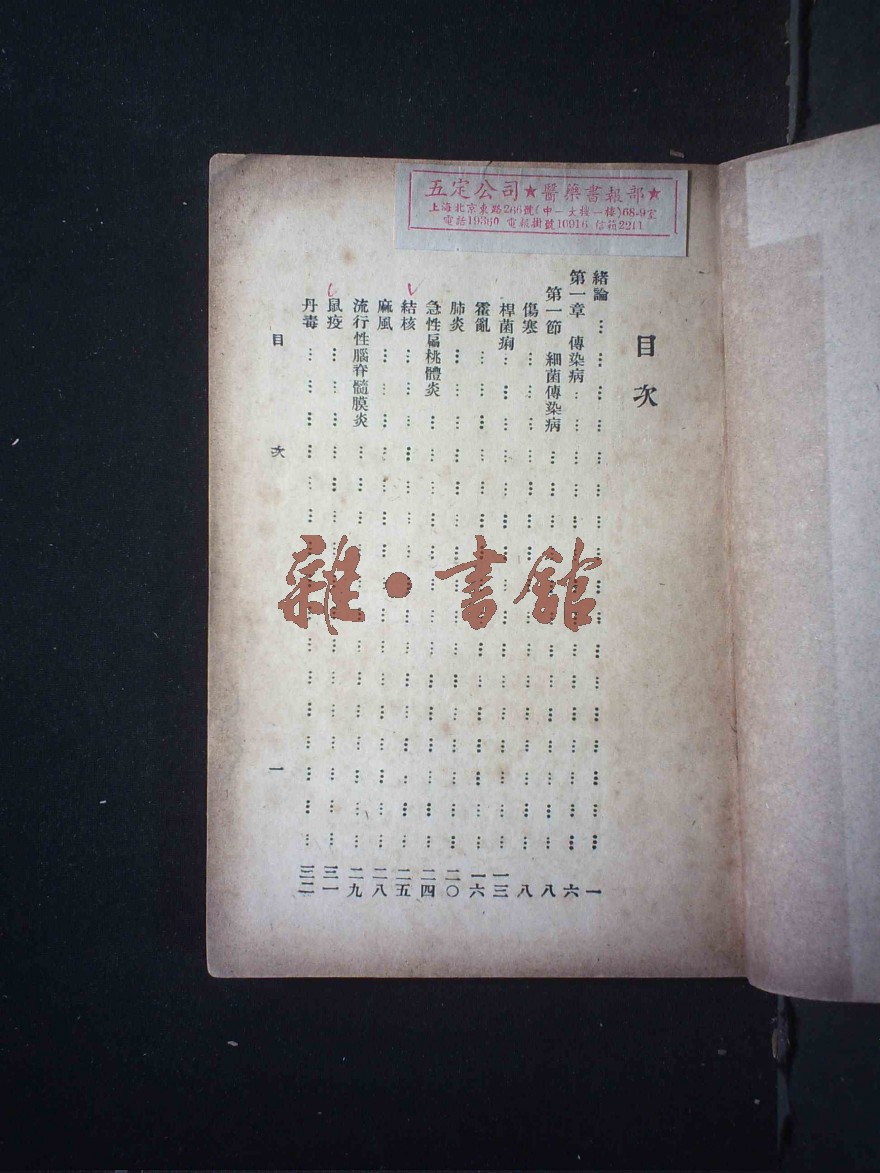 五定公司★醫藥書報部★
上海北京東路266號(中一大樓一樓)68-9室
電話19360 電報掛號10916 信箱2211
目次
緒論 … … … 一
第一章 傳染病 … … … 六
第一節 細菌傳染病 … … … 八
傷寒 … … … 八
桿菌痢 … … … 一三
霍亂 … … … 一六
肺炎 … … … 二〇
急性扁桃體炎 … … … 二四
結核 … … … 二五
麻風 … … … 二八
流行性腦脊髓膜炎 … … … 二九
鼠疫 … … … 三一
丹毒 … … … 三二
目 次 一
雜·書館